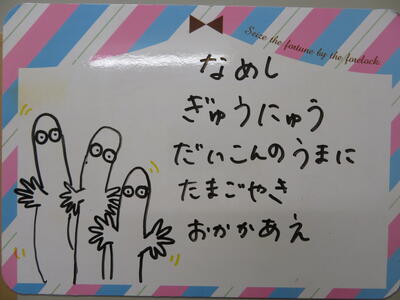 Seize the fortune by the forelock.
なめし
ぎゅうにゅう
だいこんのうまに
たまごやき
おかかあえ